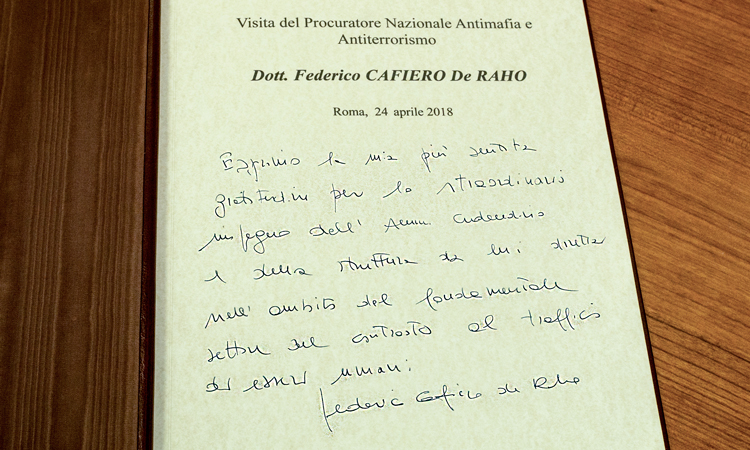 Visita del Procuratore Nazionale Antimafia e
Antiterrorismo
Dott. Federico CAFIERO De RAHO
Roma, 24 aprile 2018
Esprimo la mia più sentita
gratitudine per lo straordinario
impegno dell'Amm.
e della struttura da lui diretta
nell'ambito del fondamentale
settore del contrasto al traffico
di esseri umani.
Federico Cafiero de Raho